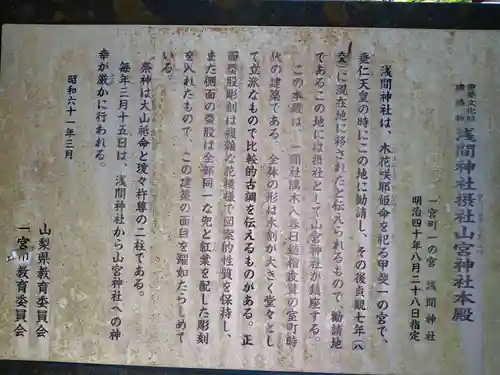 重要文化財
建造物
浅間神社摂社山宮神社本殿
一宮町一の宮　浅間神社
明治四十年八月二十八日指定
浅間神社は、木花咲耶姫命を祀る甲斐一の宮で、
垂仁天皇の時にこの地に勧請し、その後貞観七年（八
六五）に現在地に移されたと伝えられるもので、勧請地
であるこの地には摂社として山宮神社が鎮座する。
この本殿は、一間社隅木入春日造檜皮葺の室町時
代の建築である。全体の形は木割が大きく堂々とし
て立派なもので比較的古調を伝えるものがある。正
面蟇股彫刻は複雑な花模様で図案的性質を保持し、
また側面の蟇股は全部同一な兜と紅葉を配した彫刻
を入れたもので、この建築の面目を躍如たらしめて
いる。
祭神は大山祇命と瓊々杵尊の二柱である。
毎年三月十五日は、浅間神社から山宮神社への神
幸が厳かに行われる。
昭和六十一年三月
山梨県教育委員会
一宮町教育委員会